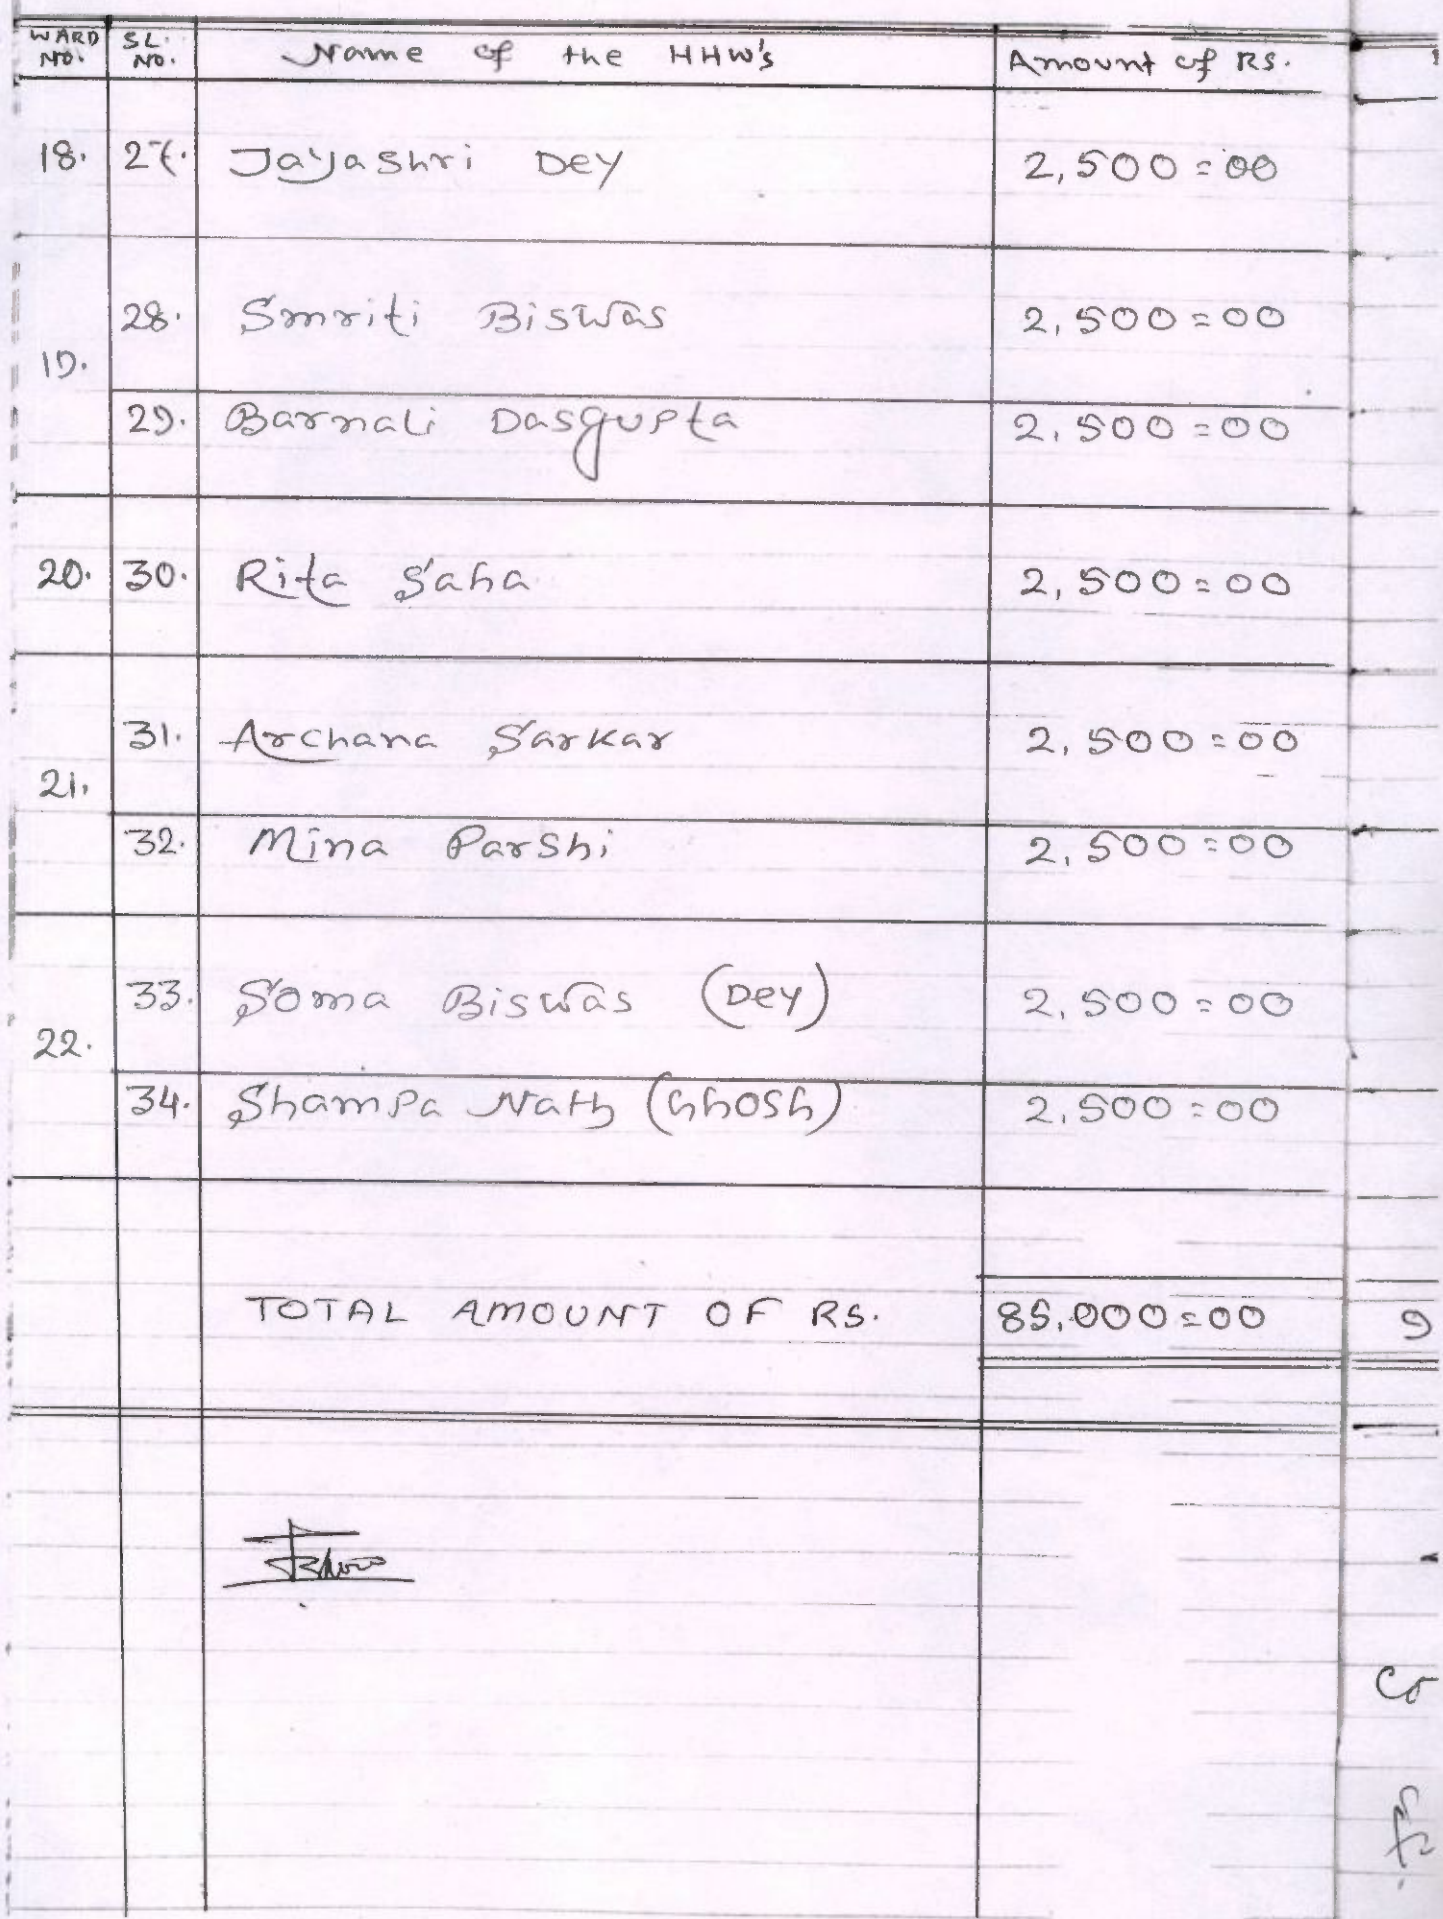 WARD NO. SL. NO. Name of the HHW's Amount of RS.
18. 27. Jayashri Dey 2,500=00
28. Smriti Biswas 2,500=00
19.
29. Barnali Dasgupta 2,500=00
20. 30. Rita Saha 2,500=00
31. Archana Sarkar 2,500=00
21.
32. Mina Parshi 2,500=00
33. Soma Biswas (Dey) 2,500=00
22.
34. Shampa Nath (Ghosh) 2,500=00
TOTAL AMOUNT OF RS. 85,000=00